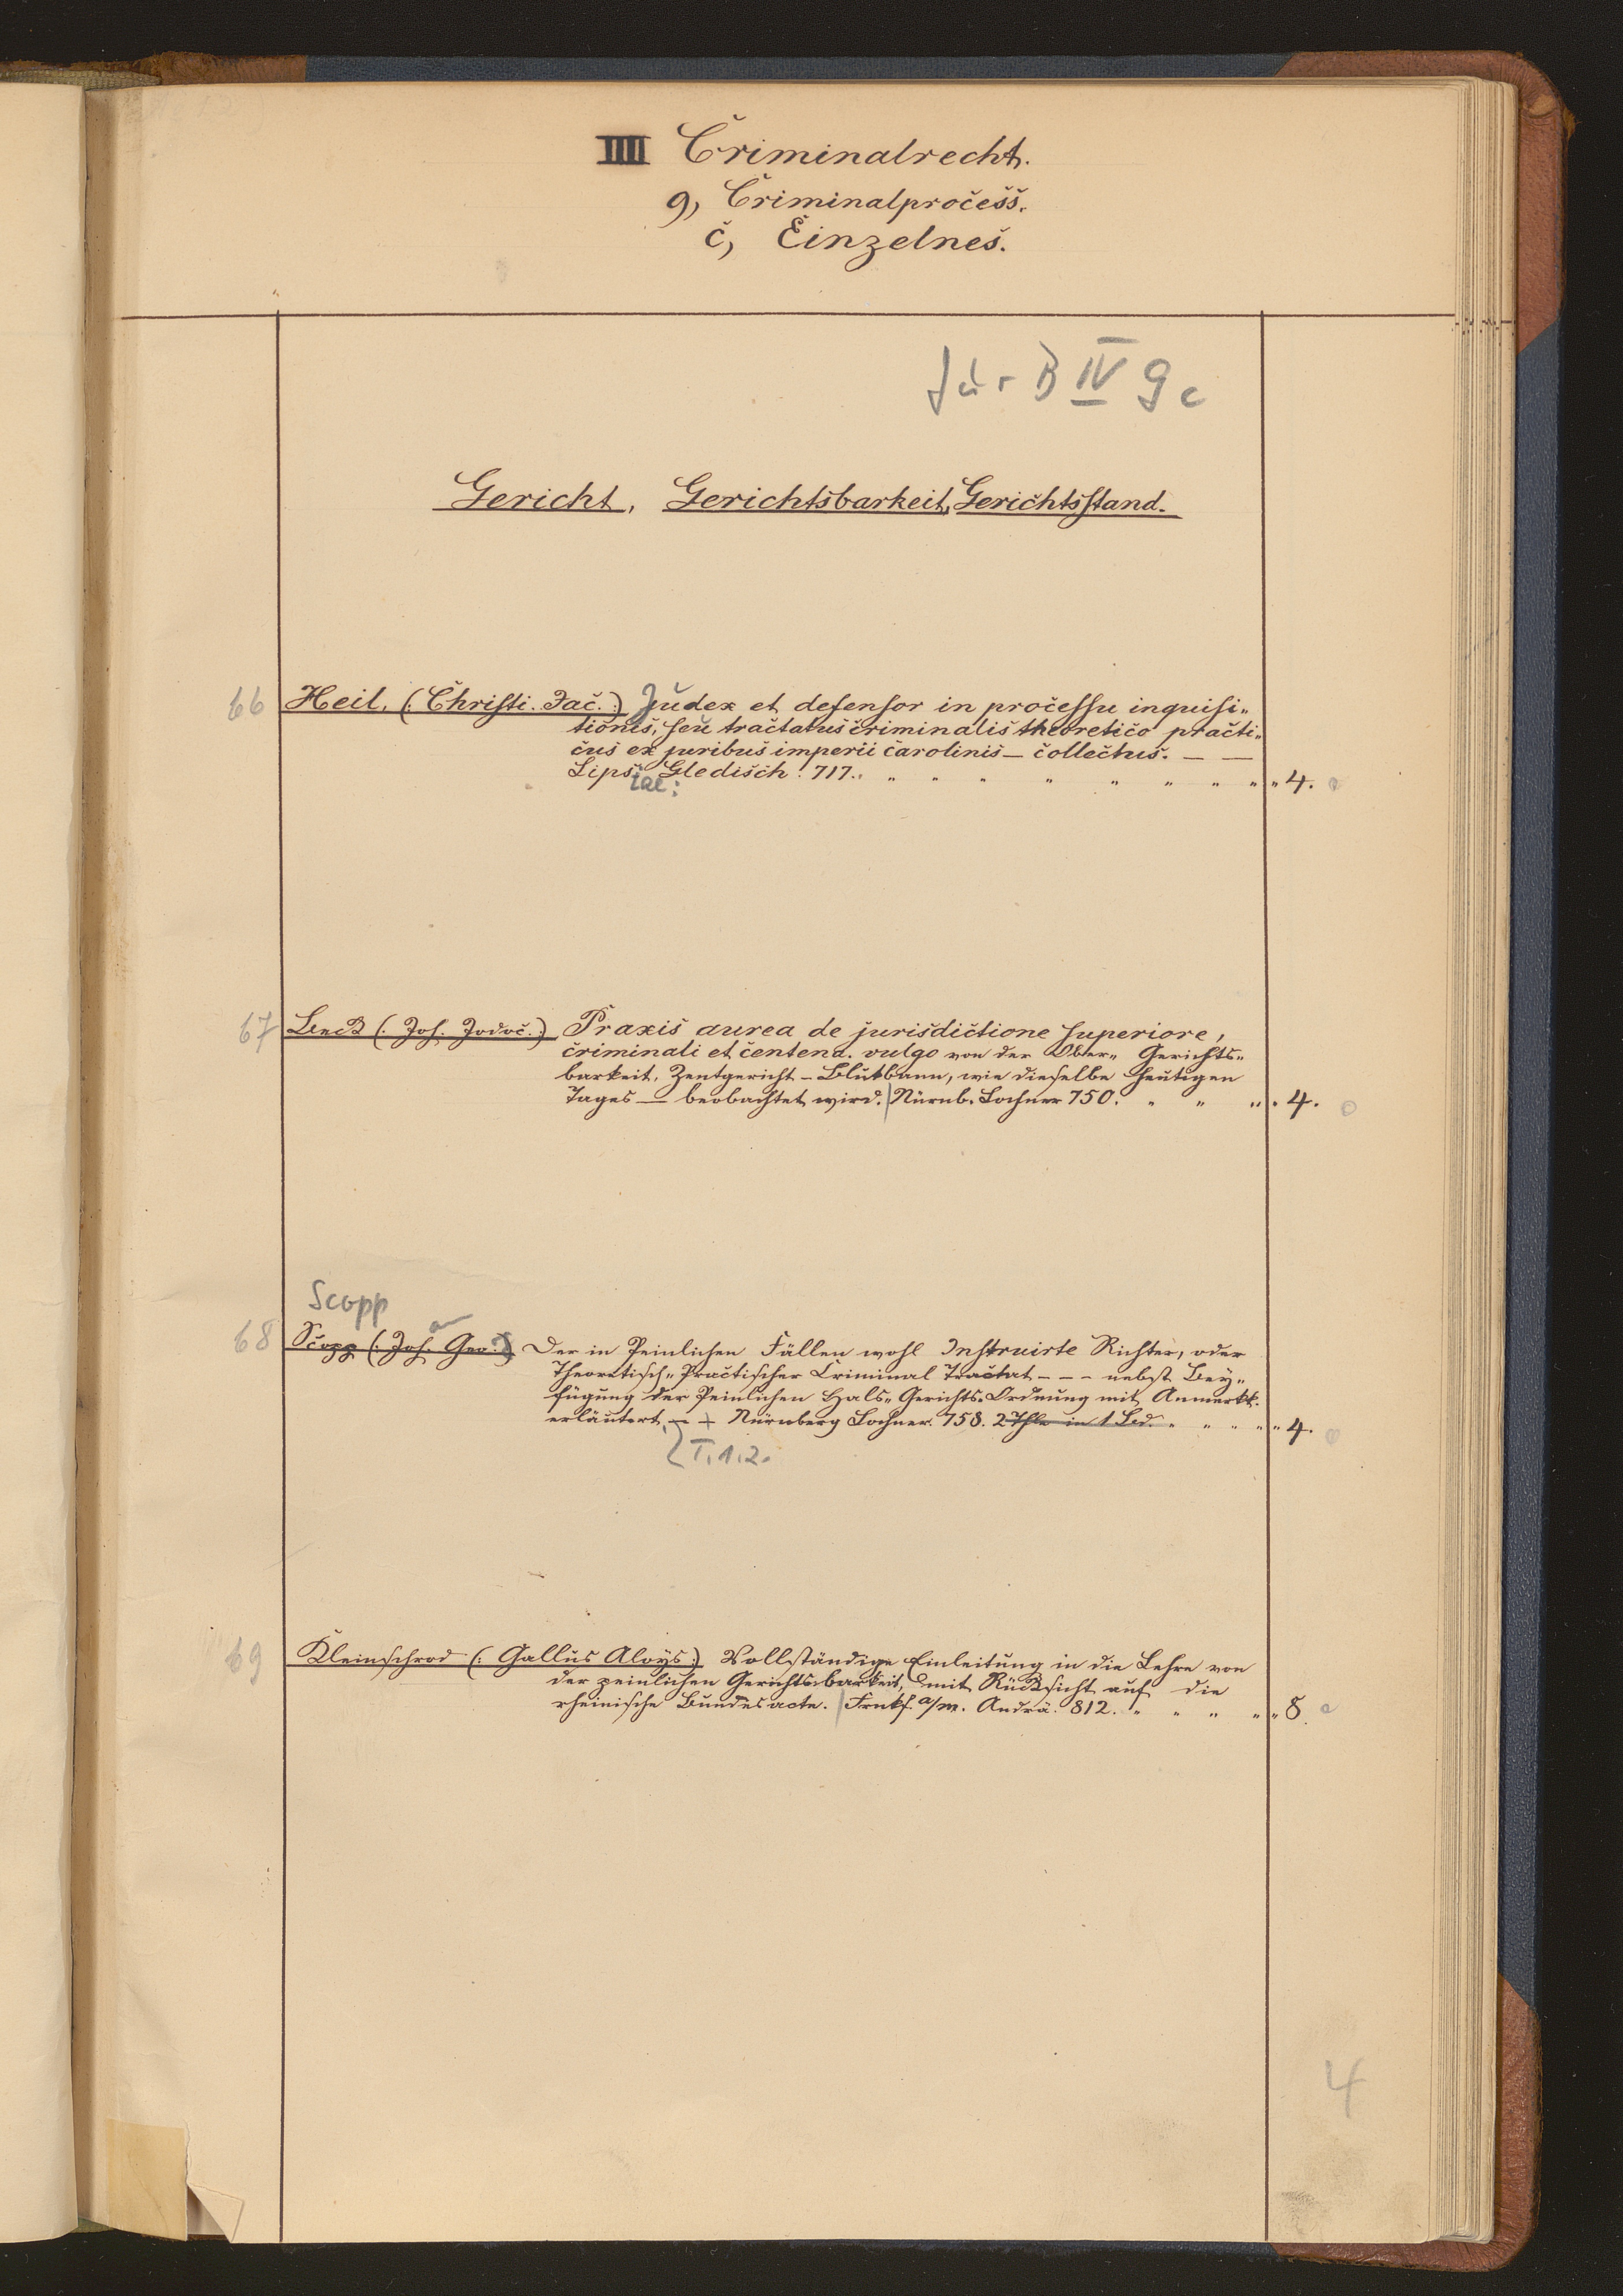 IIII Criminalrecht.
g, Criminalprocess.
c, Einzelnes.
Jur B IV g c
Gericht, Gerichtsbarkeit, Gerichtsstand.
66 Heil, (: Christi. Jac. :) Judex et defensor in processu inquisi-
tionis, seu tractatus criminalis theoretico practi-
cus ex juribus imperii carolinis — collectus. — —
Lips. Gledisch. 717. " " " " " " " " " 4.
iae:
67 Beck (: Joh. Jodoc. :) Praxis aurea de jurisdictione superiore,
criminali et centena. vulgo von der Ober- Gerichts-
barkeit, Zentgericht - Blutbann, wie dieselbe heutigen
Tages — beobachtet wird. | Nürnb. Lochner 750. " " " " 4.
Scopp
68 Scopp (: Joh. Geo. :) Der in Peinlichen Fällen wohl Instruirte Richter, oder
Theoretisch- Practischer Criminal Tractat - - - nebst Bey-
fügung der Peinlichen Hals- Gerichts-Ordnung mit Anmerkk.
erläutert, — + Nürnberg Lochner. 758. 2 Thle in 1 Bd. " " " " " 4.
T. 1. 2.
69 Kleinschrod (: Gallus Aloys :) Vollständige Einleitung in die Lehre von
der peinlichen Gerichtsbarkeit, mit Rücksicht auf die
rheinische Bundesacte. | Frnkf. a/m. Andrä. 812. " " " " " 8.
4